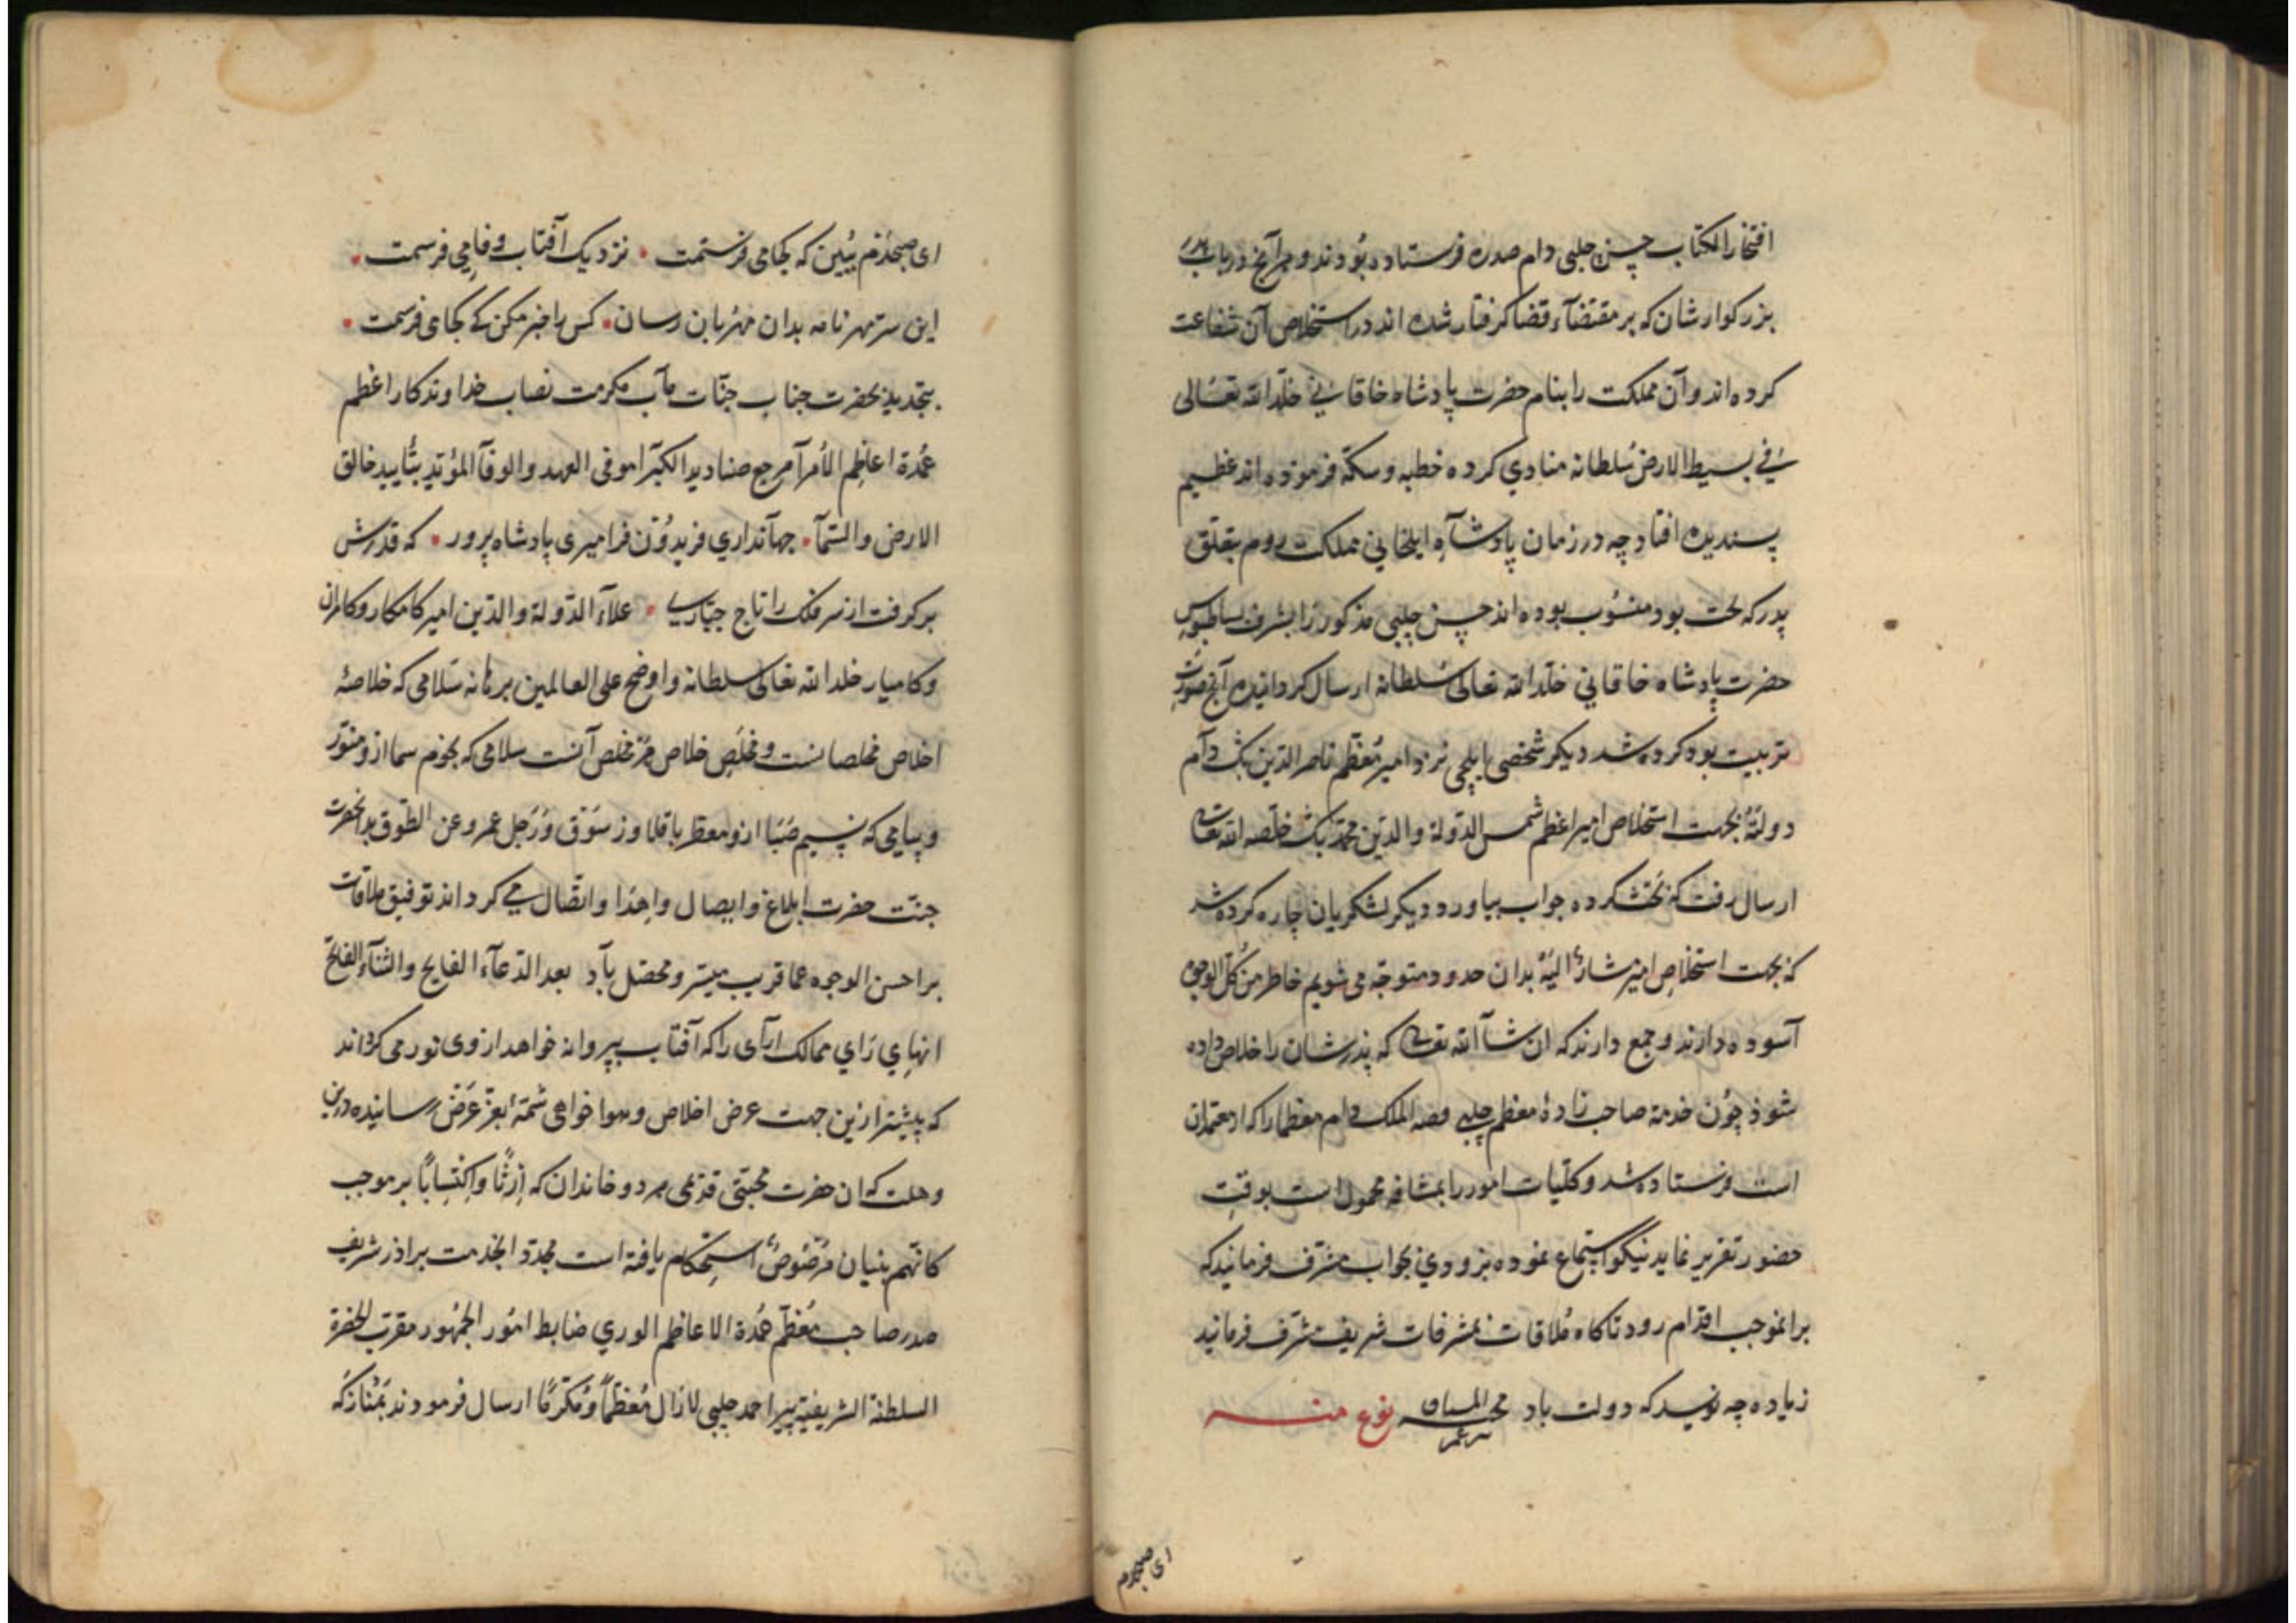 افتخار الکتاب حسن چلبی دام صدره فرستاده بودند و هر آنج در باب پدر
بزرکوارشان که بر مقتضآء قضا کرفتار شده اند در استخلاص آن شفاعت
کرده اند و آن مملکت را بنام حضرت پادشاه خاقانی خلّد الله تعالی
فی بسیط الارض سُلطانه منادی کرده خطبه و سکّه فرموده اند عظیم
پسندیده افتاد چه در زمان پادشآه ایلخانی مملکت روم بتعلّق
پدر که لحت بود منسُوب بوده اند حسن چلبی مذکور را بشرف بساطبوس
حضرت پادشاه خاقانی خلّد الله تعالی سُلطانه ارسال کردانیده آنج صورت
تربیت بود کرده شد دیکر شخصی بایلچی نزد امیر مُعظّم ناصر الدین بک دآم
دولته بجهت استخلاص امیر اعظم شمس الدولة والدین محمّد بک خلّصه الله تعالی
ارسال رفت که تختشکرده جواب بیاورد دیکر لشکریان چاره کرده شد
که بجهت استخلاص امیر مشارٌ الیه بدان حدود متوجّه می شویم خاطر من کُل الوجوه
آسوده دارند و جمع دارند که ان شآ الله تعالی که پذرشان را خلاص داده
شوذ چون خدمة صاحب زادهٔ معظم چلبی الملک دام معظما را که از معتمدان
است فرستاده شد و کلّیات امور را بمشافهه محمول است بوقت
حضور تقریر نماید نیکو استماع نموده بزودی بجواب مشرّف فرمانید که
بر انموجب اقدام رود تا کاه مُلاقات بمشرفات شریف مشرّف فرمانید
زیاده چه نویسد که دولت باد محبه المشتاق عمر نوع منه
ای صبحدم
ای صبحدم ببین که بکجا می فرستمت • نزدیک آفتاب وفا می فرستمت •
این سر مهر نامه بدان مهربان رسان • کس را خبر مکن که کجا می فرستمت •
بتجدید بحضرت جناب جنّات مآب مکرمت نصاب خداوندکار اعظم
عُمدة اعاظم الأُمرآ مرجع صنادید الکبرا موفی العهد والوفآ المؤیّد بتأیید خالق
الارض والسّمآ • جهآنداری فریدون فر امیری پادشاه پرور • که قدرش
برکرفت از سر فلک را تاج جبّاری • علآء الدّولة والدّین امیر کامکار و کامران
و کامیار خلد الله تعالی سلطانه و اوضح علی العالمین برهانه سلامی که خلاصهٔ
اخلاص مخلصانست و مُخلَص خلاص هر مخلص آنست سلامی که نجوم سما از و منوّر
و پیامی که نسیم صَبَا از و معطر باقلا و زسَوَق وَرَجل عمرو عن الطّوق بدانحضرت
جنّت حضرت ابلاغ و ایصال و اِحذا و اتّصال می کرداند توفیق ملاقات
بر احسن الوجوه عما قریب میسّر و محصّل بآد بعد الدّعآء الفایح والثنآء الفاتح
انهای رَای ممالک آرآی را که آفتاب بپروانه خواهد از وی نور می کرداند
که پیشتر ازین جهت عرض اخلاص و هوا خواهی شمّهٔ بعزّ عَرَض رسانیده درین
وهلت که ان حضرت محبتی قدیمی هر دو خاندان که اِرثًا واِکتِسابًا بر موجب
کانّهم بنیان مرصُوصٌ استِحکام یافته است مجدّد الخدمت براذر شریف
صدر صاحب مُعظّم عُمدة الاعاظم الوری ضابط امُور الجُمهُور مقرّب الحضرة
السلطنة الشریفیّه پیر احمد چلبی لا زال مُعَظّماً ومُکرّمًا ارسال فرمودند بمُثاز که